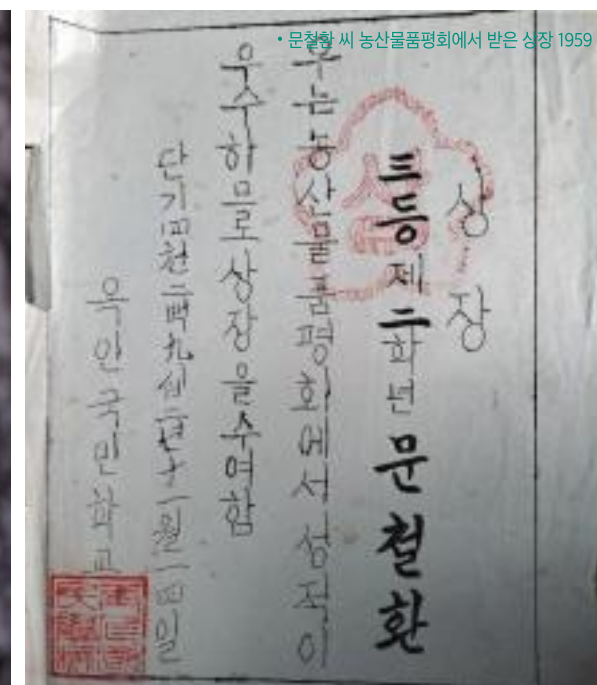 • 문철환 씨 농산물품평회에서 받은 상장 1959
상장
三등 제二학년 문철환
우는 농산물품평회에서 성적이
우수하므로 상장을 수여함
단기四천二백九십二년十一월一四일
옥인국민학교